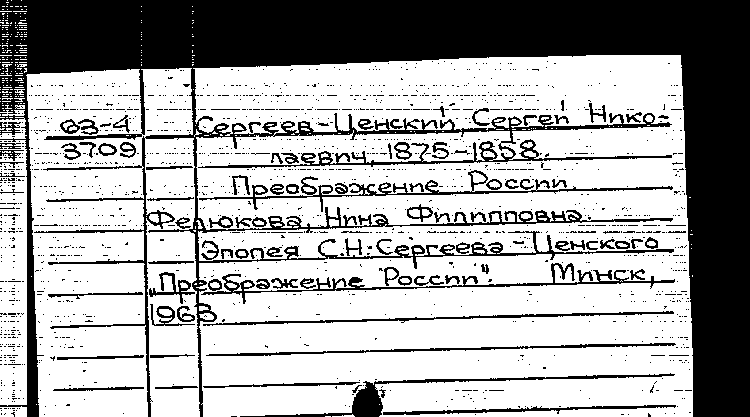 63-4 Сергеев-Ценский, Сергей Нико-
3709 лаевич, 1875-1858.
Преображение России.
Фелюкова, Нина Филипповна.
Эпопея С.Н.Сергеева-Ценского
„Преображение России". Минск,
1963.